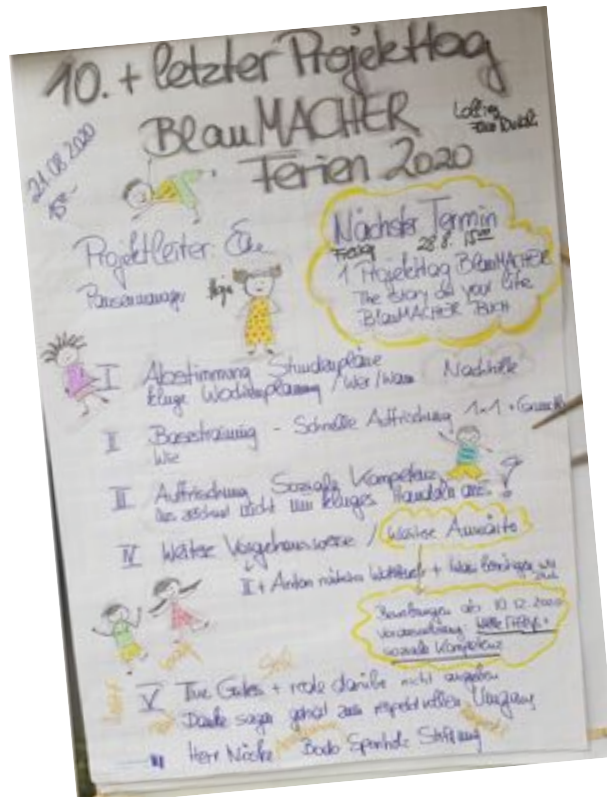 10. + letzter Projekttag
BlauMACHER
Ferien 2020
21.08.2020
15⁰⁰
Projektleiter
Pausenmanager
Nächster Termin
Freitag 28.8. 15⁰⁰
1 Projekttag BlauMACHER
The Story of your life
BlauMACHER BUCH
I Abstimmung Stundenpläne
kluge Wochenplanung / Wer / Wann
Nachhilfe
II Basistraining - Schnelle Auffrischung 1x1 +
Wie
III Auffrischung Soziale Kompetenz
Was zeichnet mich und kluges Handeln aus?
IV Weitere Vorgehensweise / Weitere Anwärter
+ Was benötigen wir
Bewerbungen ab 10.12.2020
Voraussetzung:
soziale Kompetenz
V Tue Gutes + rede darüber nicht angeben
Danke sagen gehört zum respektvollen Umgang
Herr Nöske Bodo Sponholz Stiftung